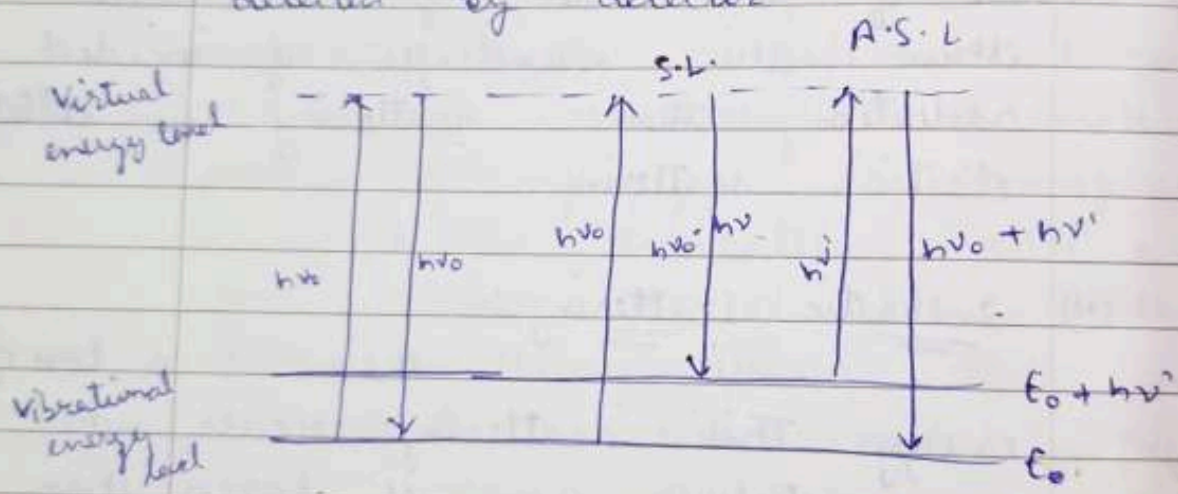 by
A.S.L
S.L.
Virtual
energy level
hν₀
hν₀
hν₀
hν₀- hν
hν'
hν₀ + hν'
E₀ + hν'
Vibrational
energy
level
E₀.